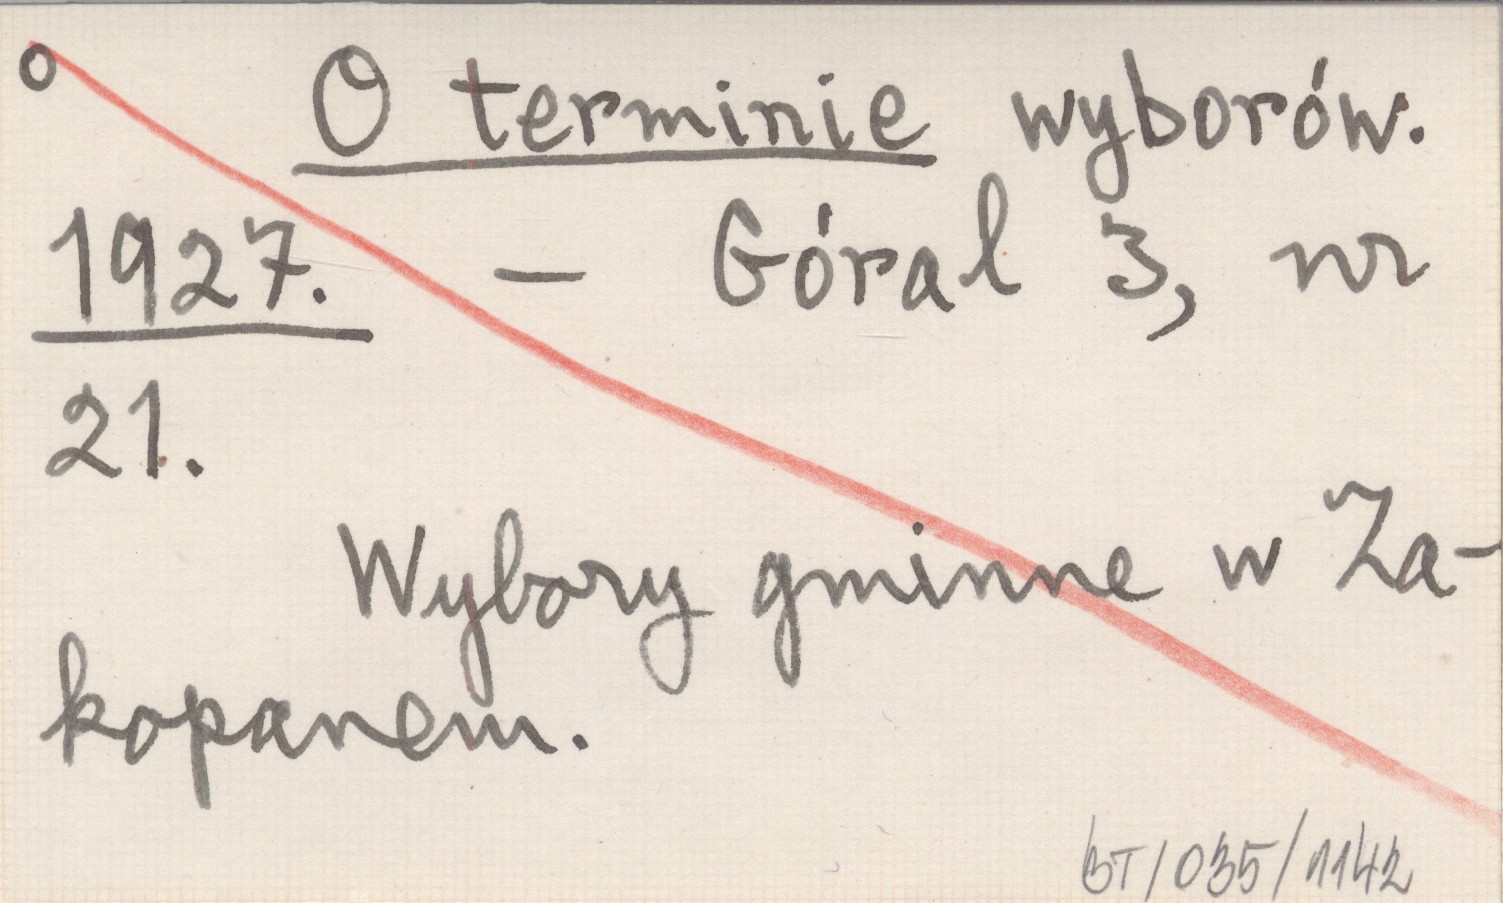 O terminie wyborów.
1927. — Góral 3, nr
21.
Wybory gminne w Za-
kopanem.
BT/035/1142